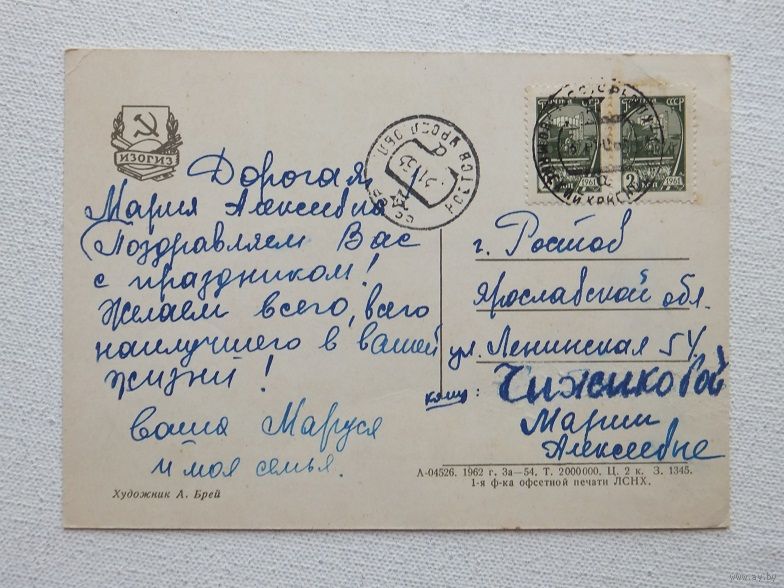 ИЗОГИЗ
Дорогая
Мария Алексеевна
Поздравляем Вас
с праздником!
Желаем всего, всего
наилучшего в вашей
жизни!
Ваша Маруся
и моя семья.
Художник А. Брей
ПОЧТА СССР
2
г. Ростов
Ярославской обл.
ул. Ленинская 54.
кому: Чижиковой
Марии
Алексеевне
А-04526. 1962 г. За—54. Т. 2000000. Ц. 2 к. З. 1345.
1-я ф-ка офсетной печати ЛСНХ.
РОСТОВ ЯРОСЛ. ОБЛ.
www.ay.by